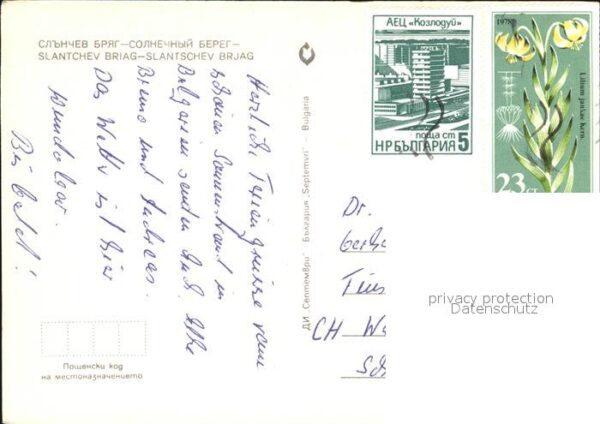 СЛЪНЧЕВ БРЯГ—СОЛНЕЧНЫЙ БЕРЕГ—
SLANTCHEV BRIAG—SLANTSCHEV BRJAG
Herzlich Feriengrüsse vom
schönen Sonnenstrand in
Bulgarien senden Euch
Bruno und Andreas.
Das Wetter ist hier
wunderbar.
Bis bald!
Пощенски код
на местоназначението
ДИ „Септември“ България „Septemvri“ - Bulgaria
АЕЦ „Козлодуй“
поща ст
НР БЪЛГАРИЯ 5
1978
Lilium jankae Kern.
23 ст
Dr.
CH
privacy protection
Datenschutz